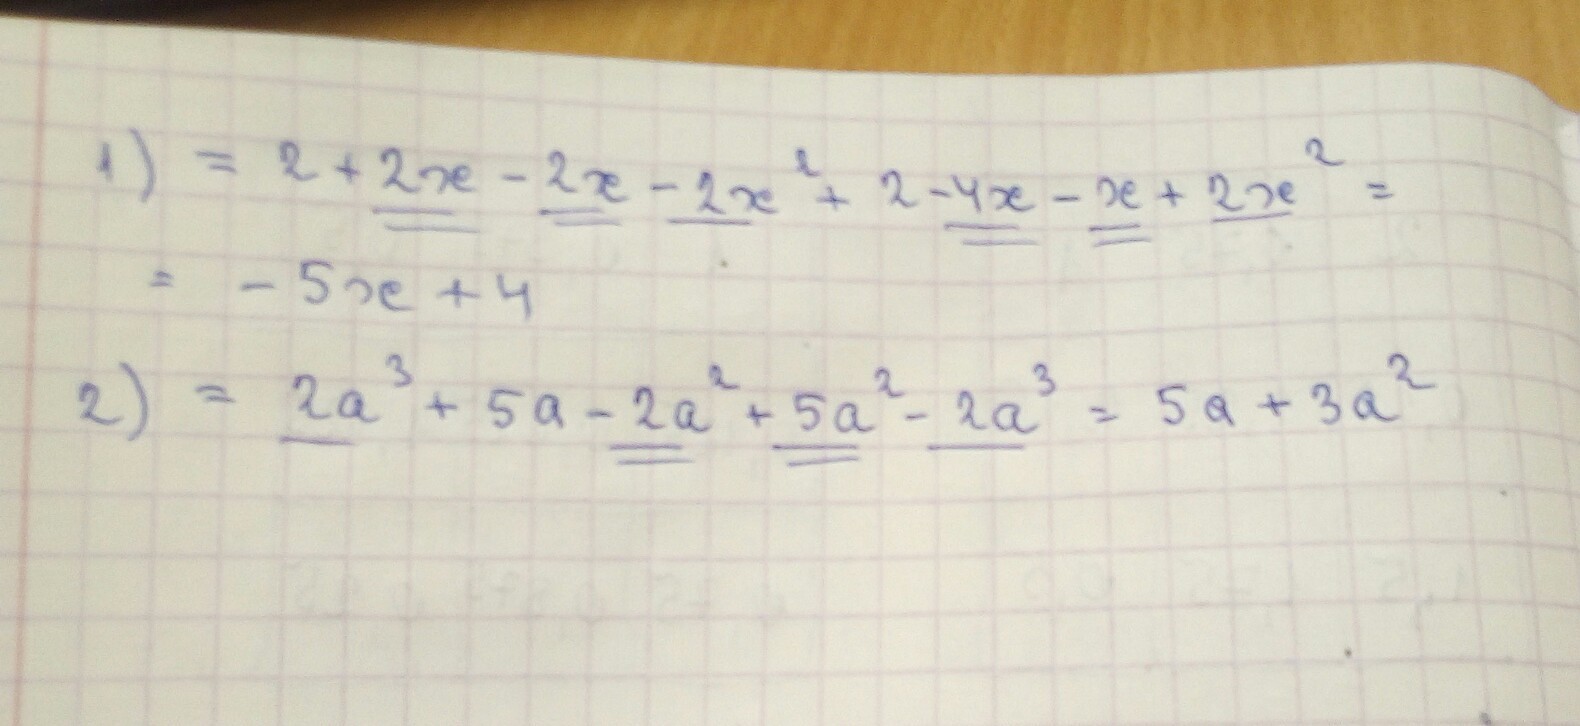 1) = 2 + 2x - 2x - 2x² + 2 - 4x - x + 2x² =
= - 5x + 4
2) = 2a³ + 5a - 2a² + 5a² - 2a³ = 5a + 3a²